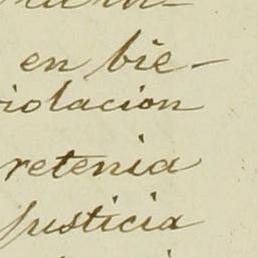 en bie-
violacion
retenia
justicia